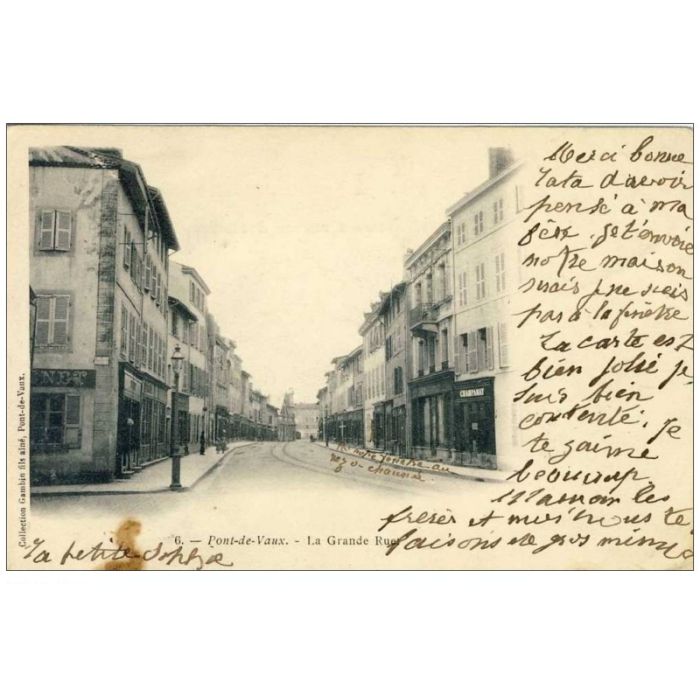 Merci bonne
Tata d'avoir
pensé à ma
fête. Je t'envoie
notre maison
mais je ne suis
pas à la fenêtre
La carte est
bien jolie je
suis bien
contente. Je
te g'aime
beaucoup.
Maman les
frères et moi nous te
faisons de gros mimis
notre fenêtre au
rez-d-chaussée
NET
CHAMPANAY
Collection Gambin fils aîné, Pont-de-Vaux.
6. — Pont-de-Vaux. - La Grande Rue
Ta petite Sophie